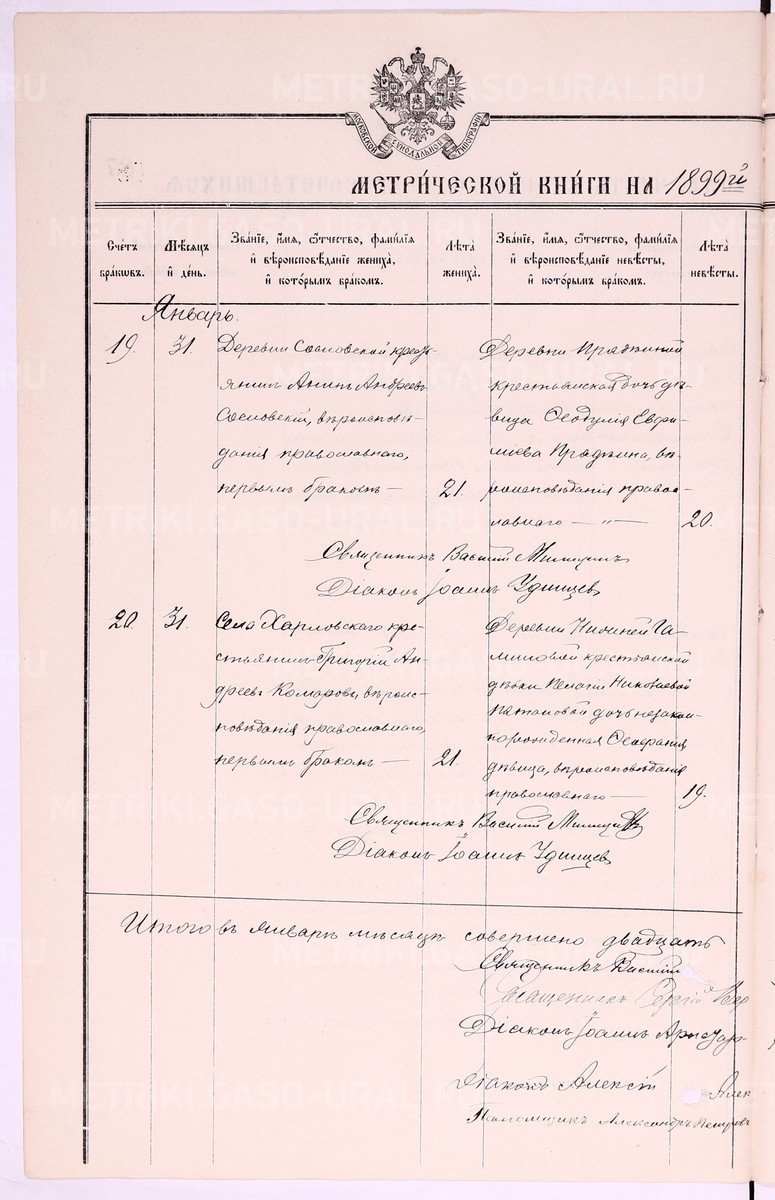 METRIKI.GASO-URAL.RU
МОСКОВСКОЙ СѴНОДАЛЬНОЙ ТИПОГРАФІИ
МЕТРИ́ЧЕСКОЙ КНИ́ГИ НА 1899й
Сче́тъ бра́кωвъ.
Мѣ́сяцъ и҆ де́нь.
Зва́нїе, и҆́мѧ, ѻ҆́тчество, фами́лїѧ и҆ вѣроисповѣ́данїе жениха̀, и҆ кото́рымъ бра́комъ.
Лѣ́та жениха̀.
Зва́нїе, и҆́мѧ, ѻ҆́тчество, фами́лїѧ и҆ вѣроисповѣ́данїе невѣ́сты, и҆ кото́рымъ бра́комъ.
Лѣ́та невѣ́сты.
Январь.
19. 31.
Деревни Сосновской кресть-
янинъ Андреевъ
Сосновскій, вѣроисповѣ-
данія православнаго,
первымъ бракомъ — 21.
Деревни
крестьянская дочь дѣ-
вица Ѳеодулія Евфи-
міева вѣ-
роисповѣданія право-
славнаго — " — 20.
Священникъ Василій
Діаконъ Іоаннъ Удинцев
20. 31.
Село Харловскаго кре-
стьянинъ Григорій Ан-
древъ Комаровъ, вѣроис-
повѣданія православнаго,
первымъ бракомъ — 21.
Деревни Нижней
крестьянской
дѣвки Пелагіи Николаевой
дочь незакон-
норожденная
дѣвица, вѣроисповѣданія
православнаго — 19.
Священникъ Василій
Діаконъ Іоаннъ Удинцев
Итого въ январѣ мѣсяцѣ совершено двадцать
Священникъ Василій
Священникъ Сергій
Діаконъ Іоаннъ
Діаконъ Алексій
Алек
Псаломщикъ Александръ